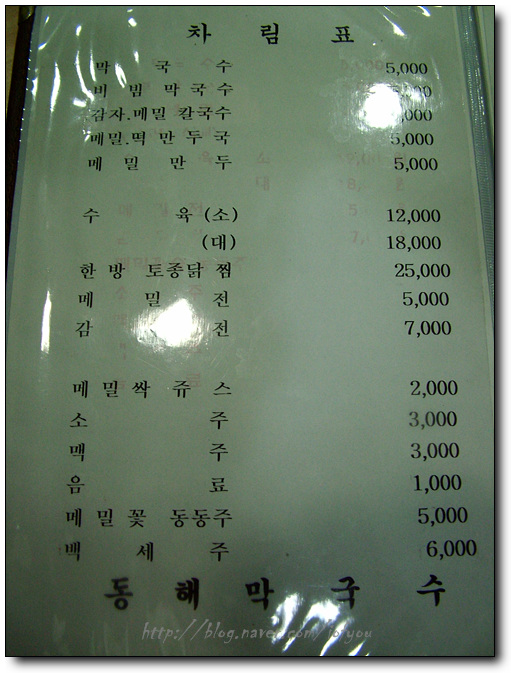 차 림 표
막 국 수 5,000
비 빔 막 국 수
감자.메밀 칼국수
메밀.떡 만 두 국 5,000
메 밀 만 두 5,000
수 육 (소) 12,000
(대) 18,000
한 방 토종닭 찜 25,000
메 밀 전 5,000
감 전 7,000
메 밀 싹 쥬 스 2,000
소 주 3,000
맥 주 3,000
음 료 1,000
메 밀 꽃 동동주 5,000
백 세 주 6,000
동 해 막 국 수